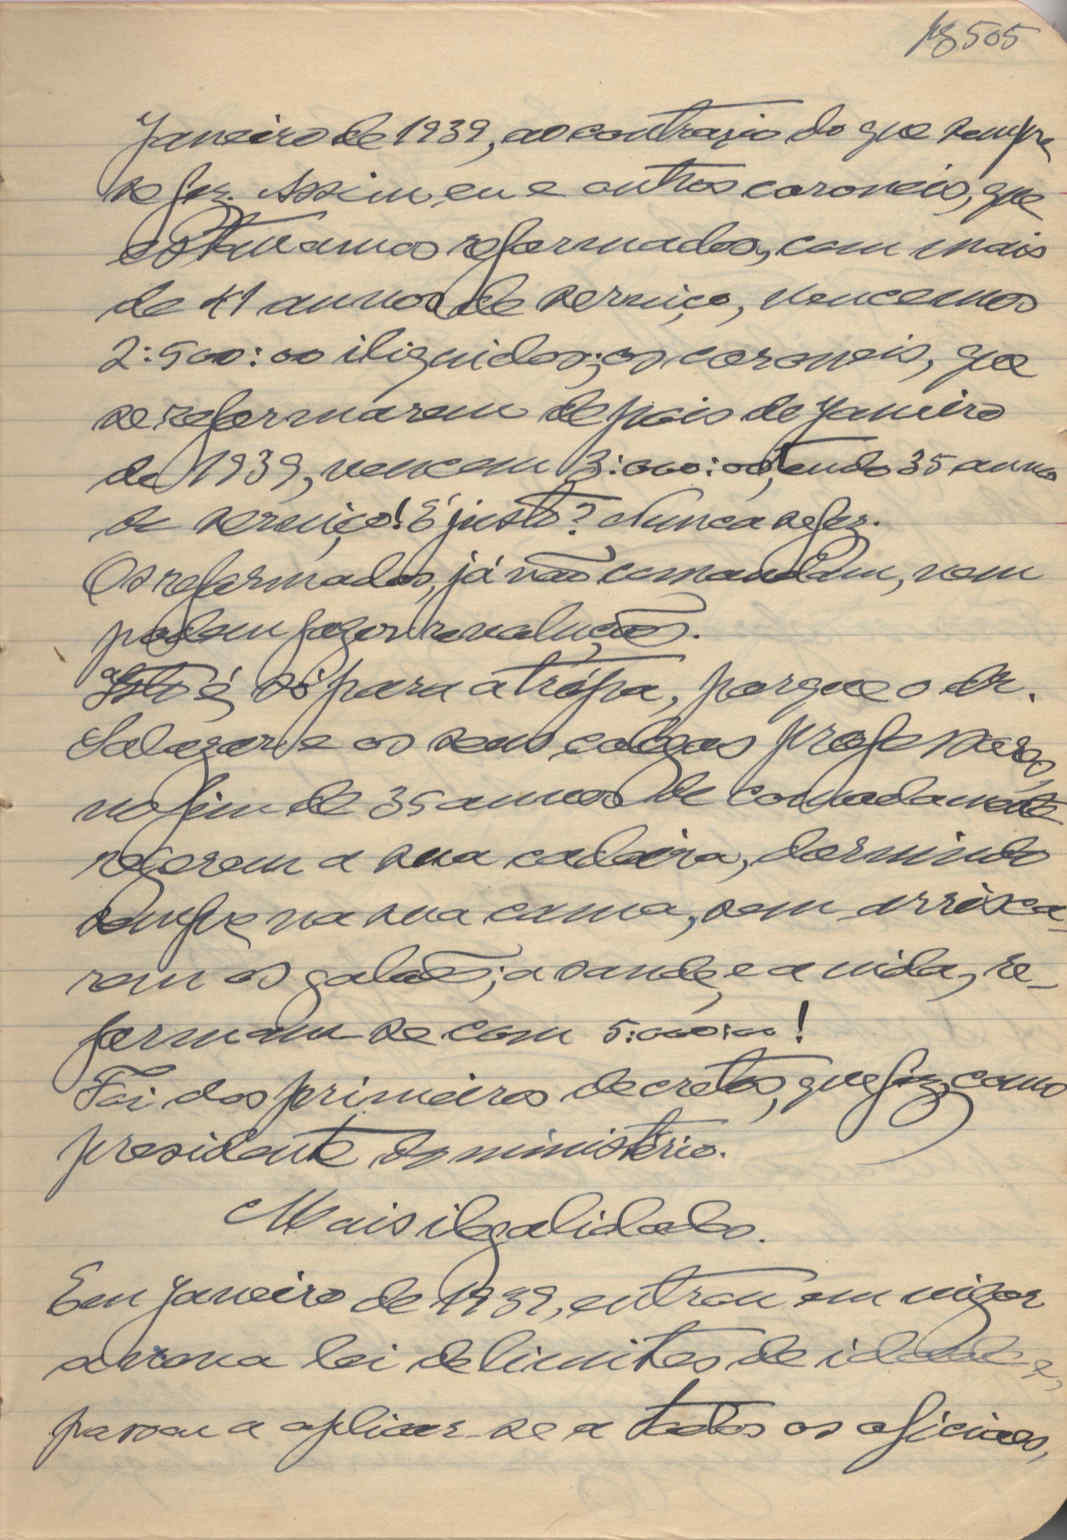 Pg 505
Janeiro de 1939, ao contrario do que sempre
se fez. Assim eu e outros coroneis, que
estavamos reformados, com mais
de 41 annos de serviço, vencemos
2:500:00 iliquidos; os coroneis, que
se reformarem depois de Janeiro
de 1939, vencem 3:000:00, tendo 35 annos
de serviço! É justo? Nunca se fez.
Os reformados, já não comandam, nem
podem fazer revolução.
Isto é só para a trópa, porque o Dr.
Salazar e os seus colegas professores,
no fim de 35 annos de comodamente
regerem a sua cadeira, dormindo
sempre na sua cama, sem arrisca-
rem os galões, a saude, e a vida, re-
formam-se com 5:000:00!
Foi dos primeiros decretos, que fez como
presidente do ministério.
Mais ilegalidades.
Em Janeiro de 1939, entrou em vigor
a nova lei de limites de idade e,
passou a aplicar-se a todos os oficiaes,